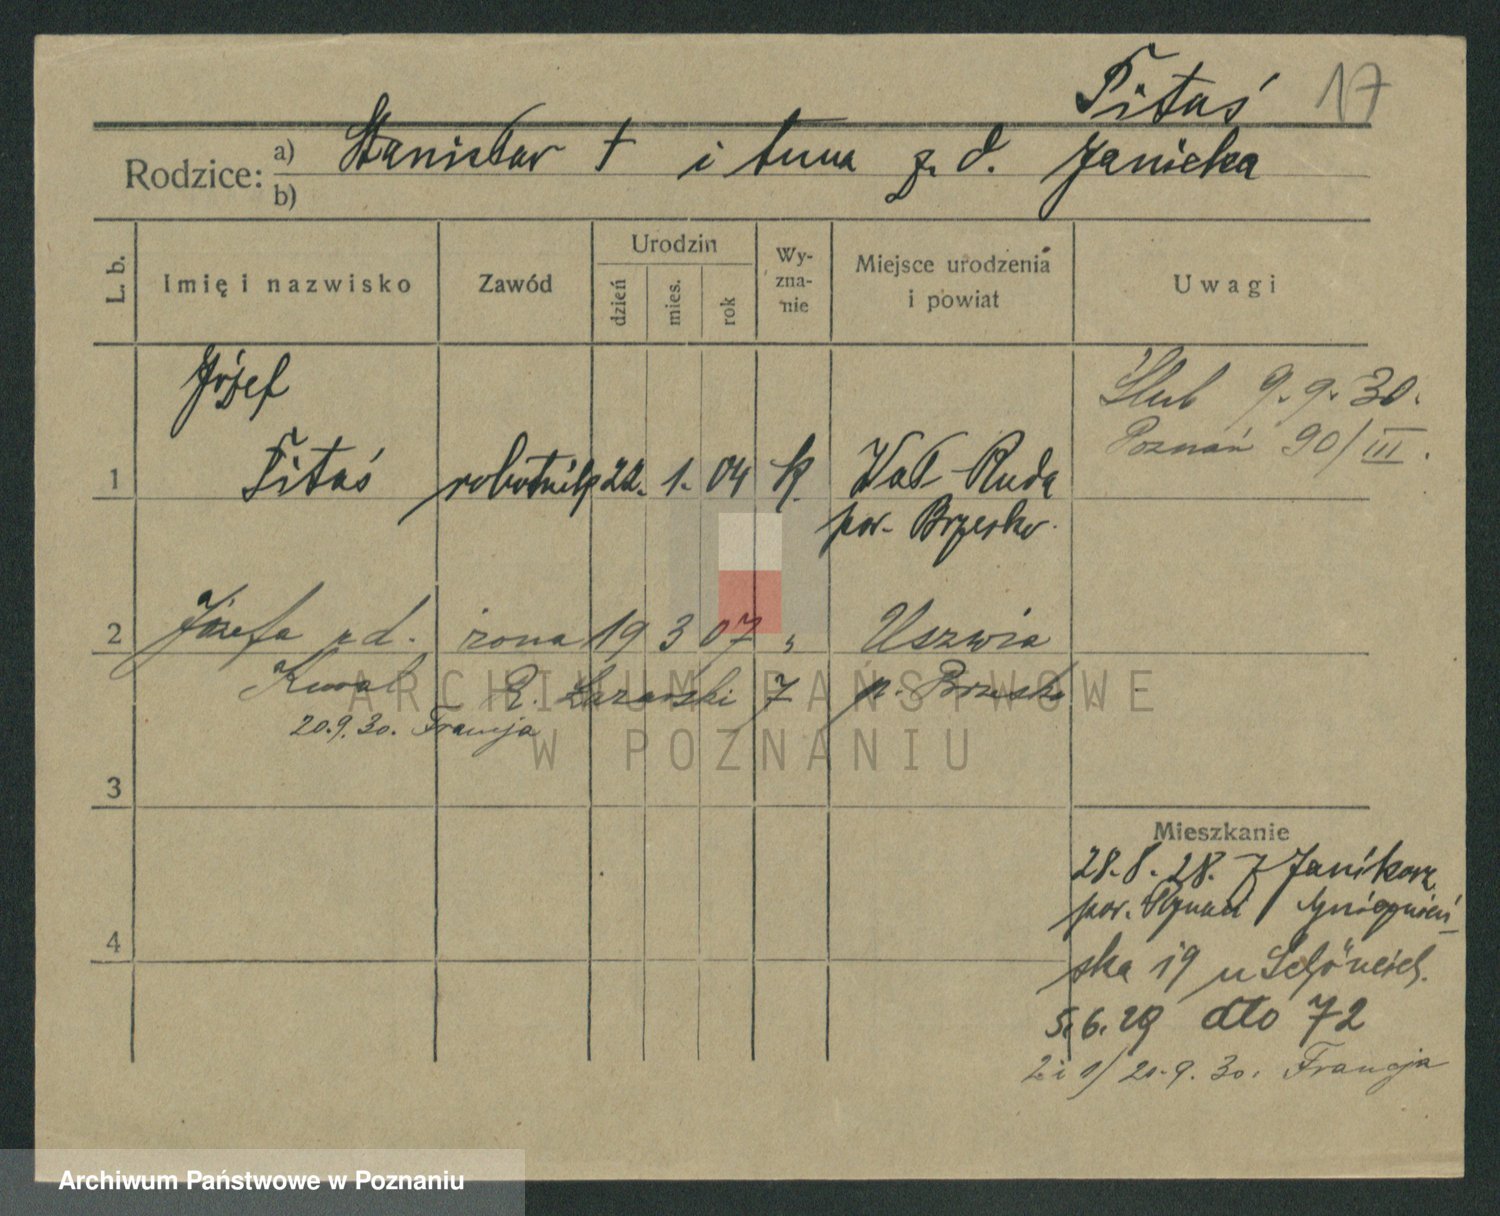 Titaś 17
Rodzice: a) Stanisław † i Anna z. d. Janicka
b)
L. b. Imię i nazwisko Zawód Urodzin dzień mies. rok Wy-zna-nie Miejsce urodzenia i powiat Uwagi
Józef
Ślub 9.9.30.
Poznań 90/III.
1 Titaś robotnik 22. 1. 04 k. Wał-Ruda
pow. Brzesko.
2 Józefa z d. żona 19 3 07 " Uszwia
Kural R. Łazarski 7 p. Brzesko
20.9.30. Francja
3
Mieszkanie
28.8.28. z Janikow
pow.
4
ska 19 u
5.6.29 dto 72
2 i 1/ 20.9.30. Francja
ARCHIWUM PAŃSTWOWE
W POZNANIU
Archiwum Państwowe w Poznaniu